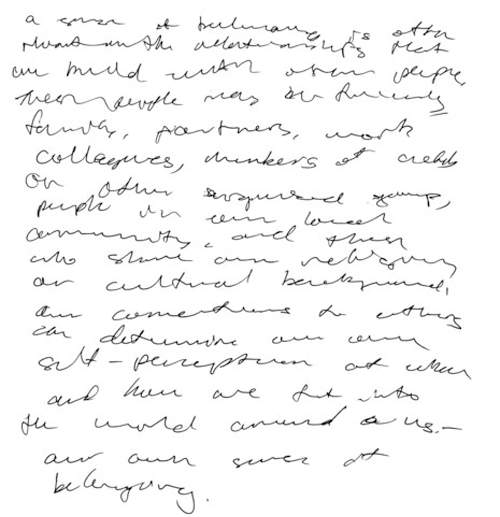 a sense of belonging is often
the relationships that
we build with other people,
These people may be friends,
family, partners, work
colleagues, members of
or other organised group,
people in our local
community, and those
who share our religious
or cultural background.
Our connections to others
can determine our own
self-perception of where
and how we fit into
the world around us –
our own sense of
belonging.